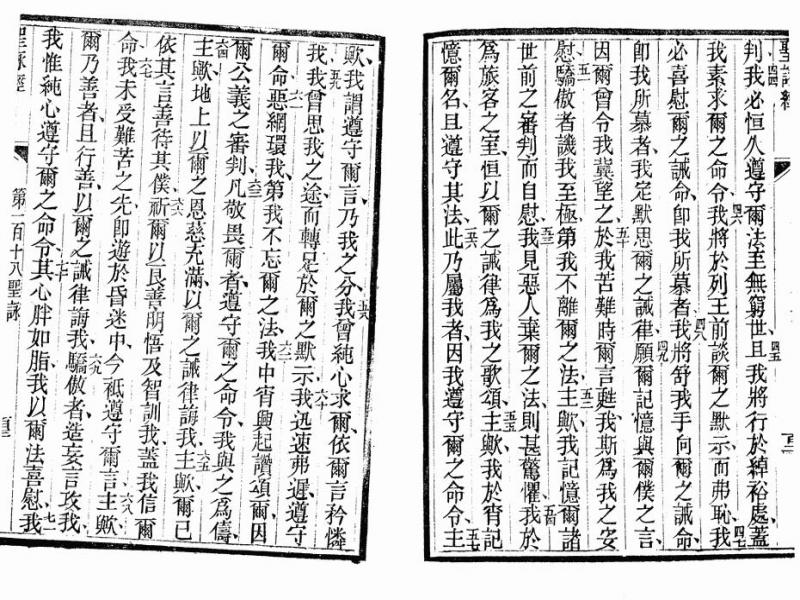 聖詠經
判我必恒久遵守爾法至無窮世且我將行於綽裕處蓋
四五
我素求爾之命令我將於列王前談爾之默示而弗恥我
四六 四七
必喜慰爾之誡命卽我所慕者我將舒我手向爾之誡命
四八
卽我所慕者我定默思爾之誡律願爾記憶與爾僕之言
四九
因爾曾令我冀望之於我苦難時爾言甦我斯爲我之安
五十
慰驕傲者譏我至極第我不離爾之法主歟我記憶爾諸
五一 五二
世前之審判而自慰我見惡人棄爾之法則甚驚懼我於
五三
爲旅客之至恒以爾之誡律爲我之歌頌主歟我於宵記
五五
憶爾名且遵守其法此乃屬我者因我遵守爾之命令主
五六 五七
歟我謂遵守爾言乃我之分我曾純心求爾依爾言矜憐
五八
我我曾思我之途而轉足於爾之默示我迅速弗遲遵守
五九 六十
爾命惡網環我第我不忘爾之法我中宵興起讚頌爾因
六一 六二
爾公義之審判凡敬畏爾者遵守爾之命令我與之爲儔
六三
主歟地上以爾之恩慈充滿以爾之誡律誨我主歟爾已
六五
依其言善待其僕祈爾以良善明悟及智訓我蓋我信爾
六六
命我未受難苦之先卽遊於昏迷中今祗遵守爾言主歟
六七 六八
爾乃善者且行善以爾之誡律誨我驕傲者造妄言攻我
六九
我惟純心遵守爾之命令其心胖如脂我以爾法喜慰我
七十 七一
聖詠經
第一百十八聖詠